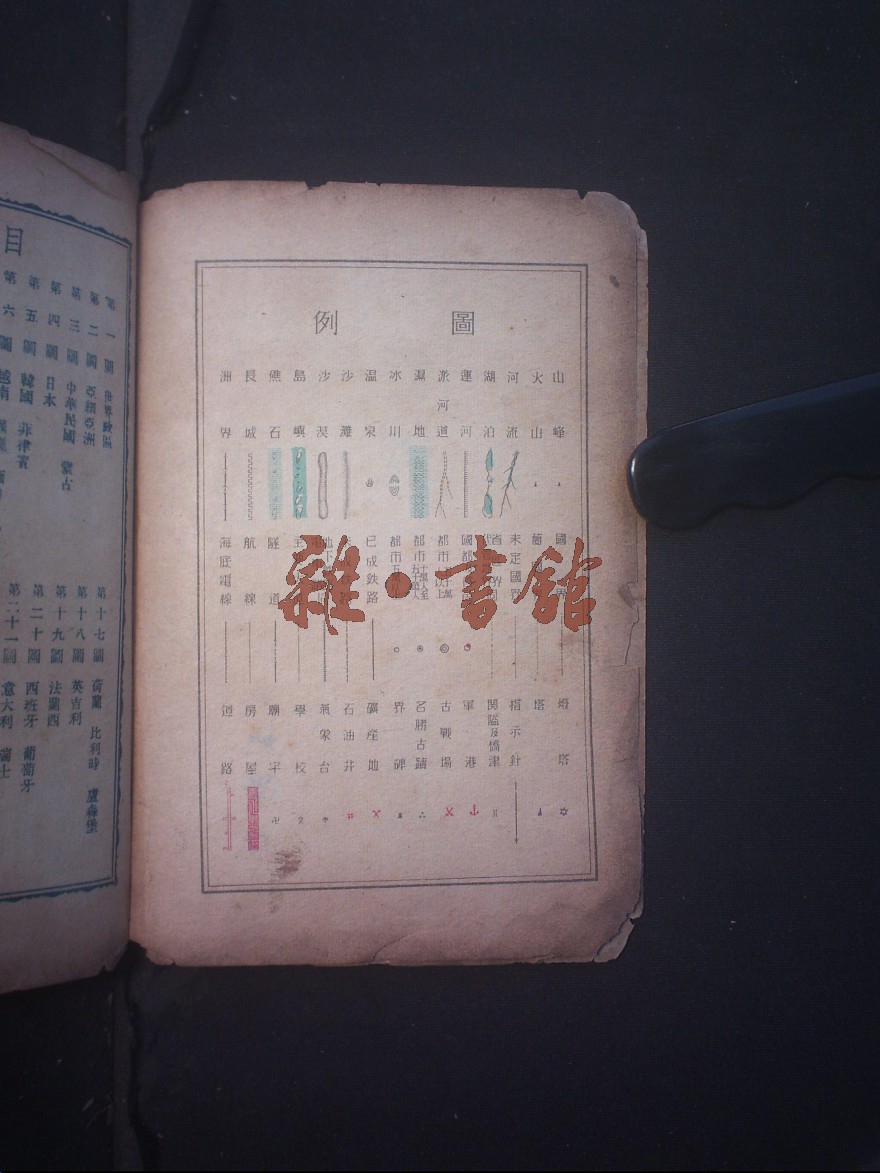 圖例
山峰
火山
河流
湖泊
運河
派河道
濕地
冰川
温泉
沙灘
沙漠
島嶼
礁石
長城
洲界
未定國界
已成鉄路
隧道
航線
海底電線
燈塔
塔
指示針
関隘及橋津
軍港
古戰場
名勝古蹟
界碑
礦產地
石油井
氣象台
學校
廟宇
房屋
道路
雜·書館
目
第一圖 世界政區
第二圖 亞細亞洲
第三圖 中華民國 蒙古
第四圖 日本
第五圖 韓國 菲律賓
第六圖 越南
第十七圖 荷蘭 比利時 盧森堡
第十八圖 英吉利
第十九圖 法蘭西
第二十圖 西班牙 葡萄牙
第二十一圖 意大利 瑞士